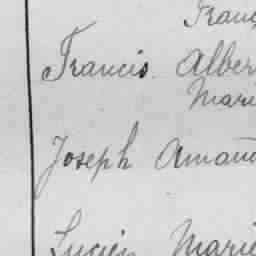 Francis Alber
Mari
Joseph Amand
Lucien Marie